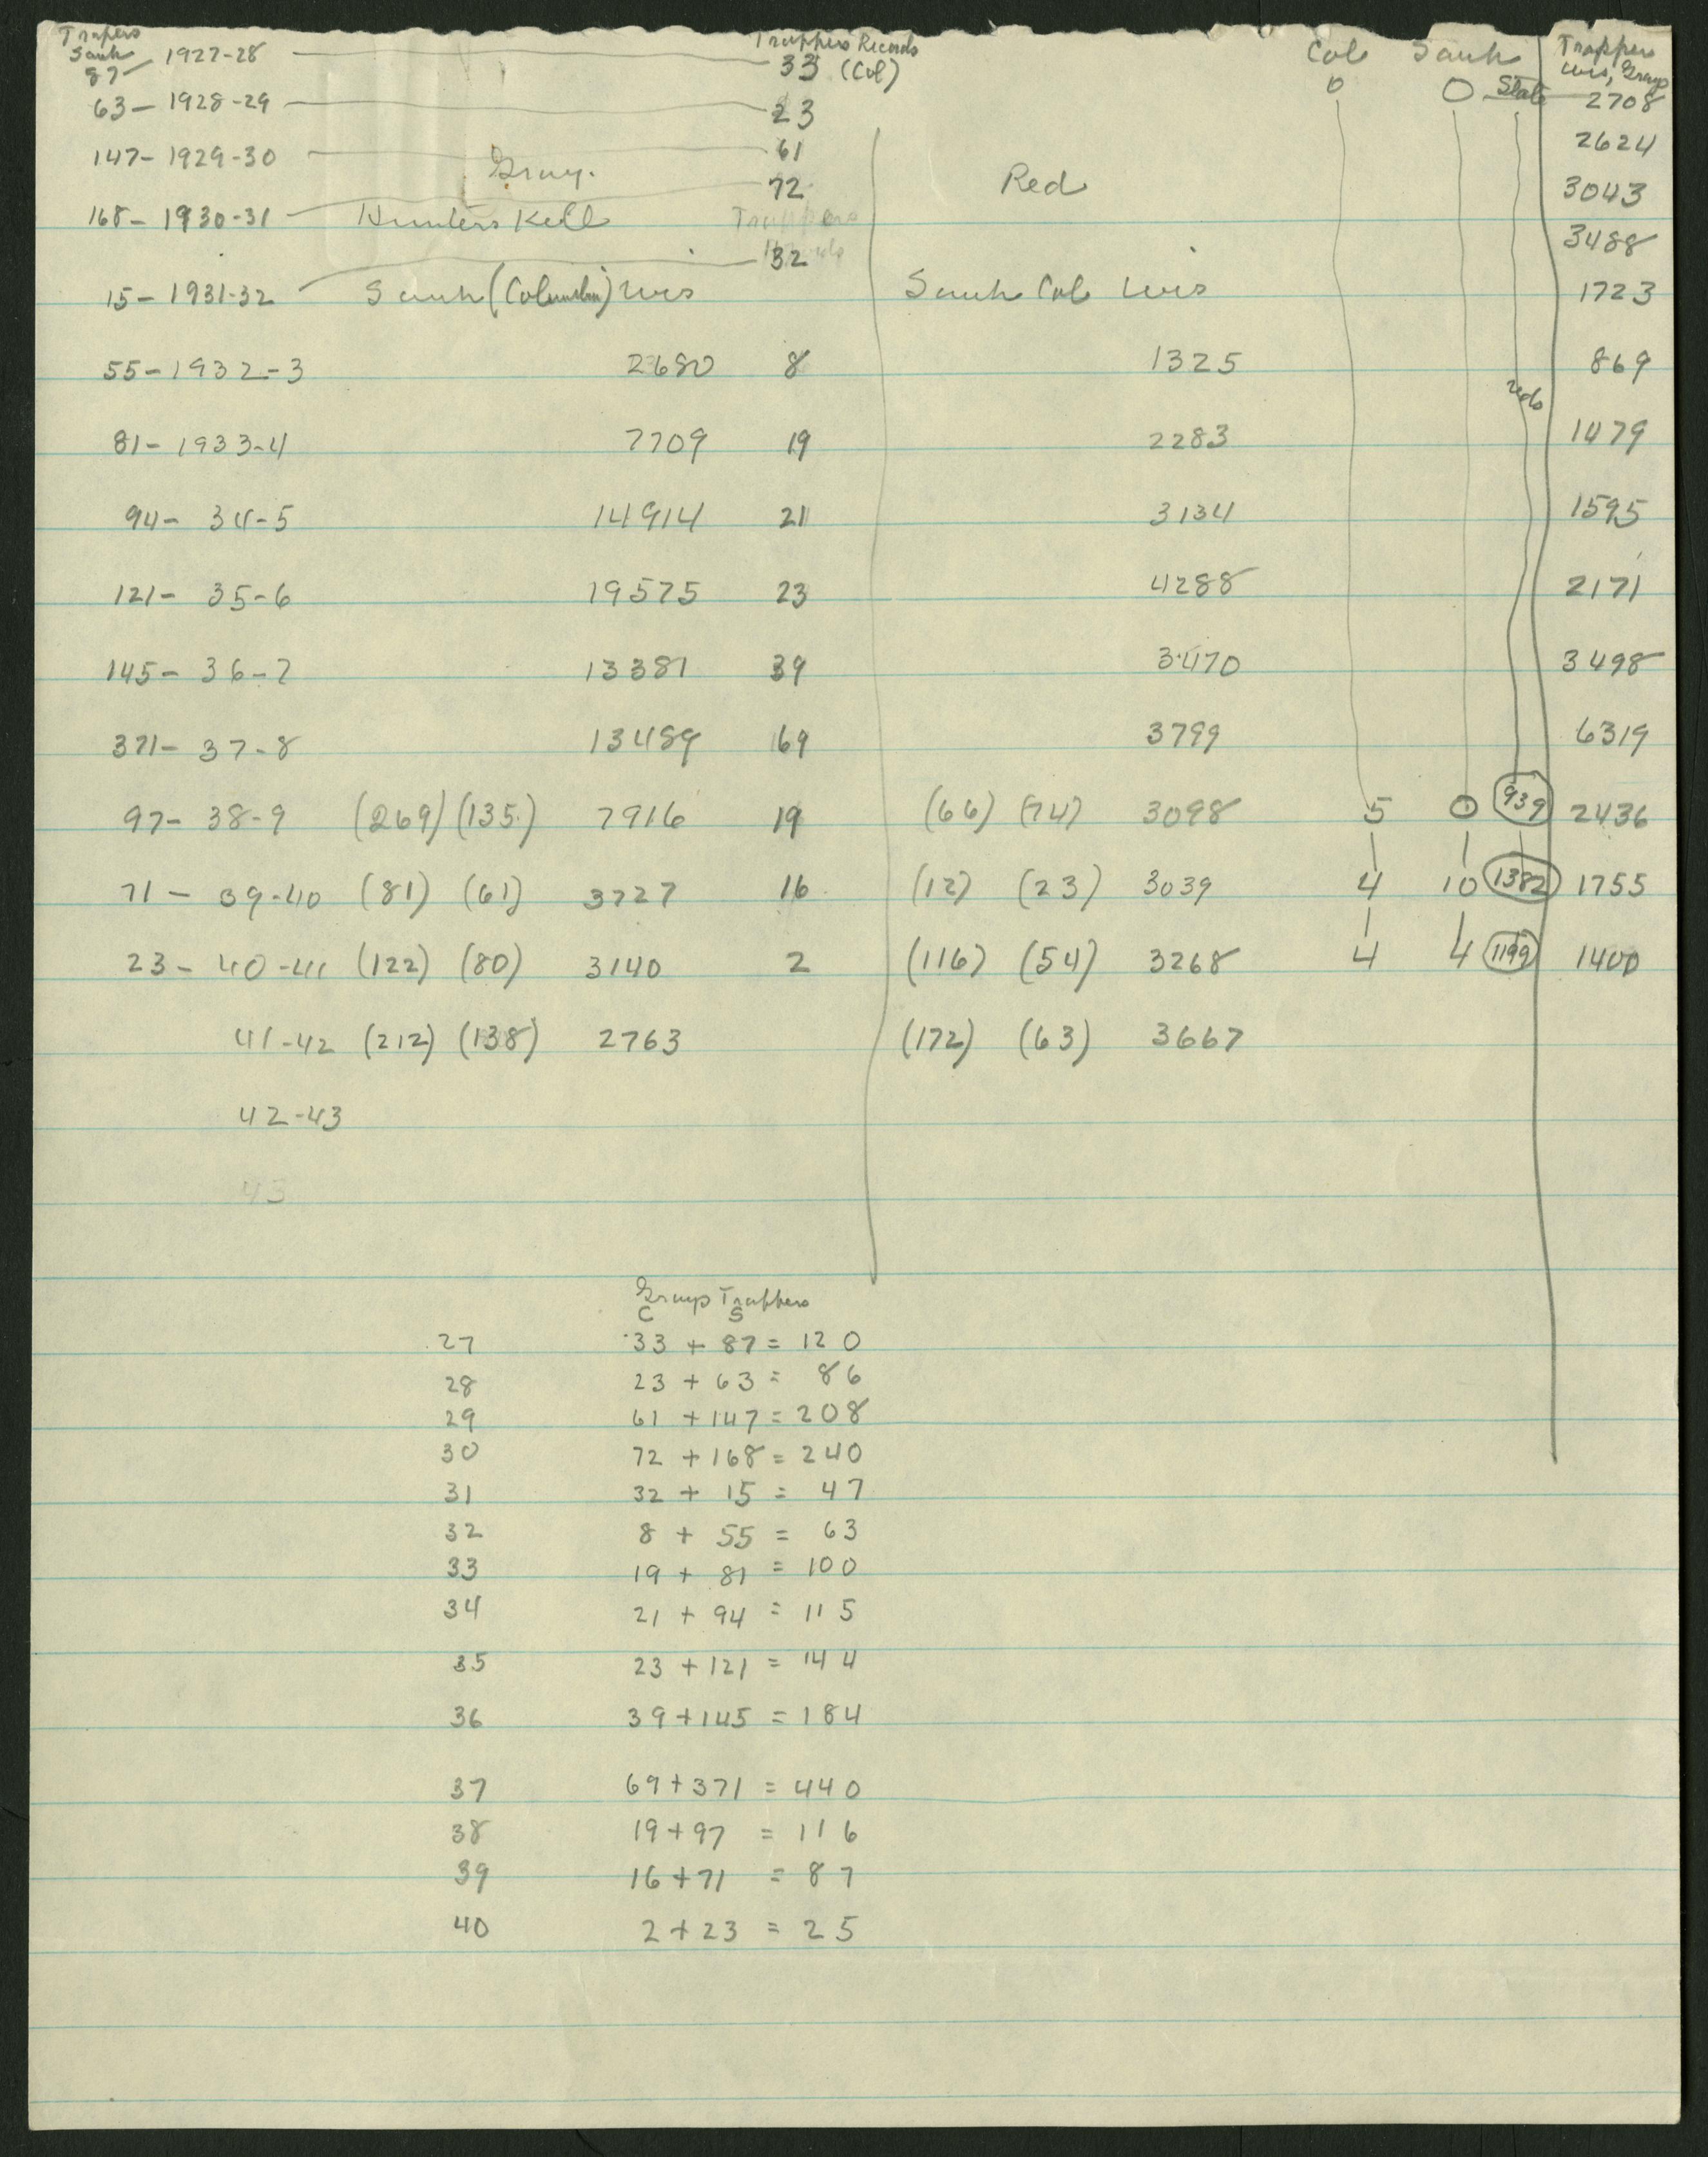 Trapers Trappers Records Col Sauk Trappers
Sauk 1927-28 33 (Col) Wis, Grays
87 0 0 State 2708
63 - 1928-29 23 2624
147 - 1929-30 61 3043
Gray. 72 Red
168 - 1930-31 Hunters Kill Trappers 3488
Records
32
15 - 1931-32 Sauk (Columbia) Wis Sauk Col Wis 1723
55 - 1932-3 2680 8 1325 869
reds
81 - 1933-4 7709 19 2283 1479
94 - 34-5 14914 21 3134 1595
121 - 35-6 19575 23 4288 2171
145 - 36-7 13381 39 3470 3498
371 - 37-8 13489 69 3799 6319
97 - 38-9 (269) (135) 7916 19 (66) (74) 3098 5 0 939 2436
71 - 39-40 (81) (61) 3727 16 (12) (23) 3039 4 10 1382 1755
23 - 40-41 (122) (80) 3140 2 (116) (54) 3268 4 4 1199 1400
41-42 (212) (138) 2763 (172) (63) 3667
42-43
43
Grays Trappers
C S
27 33 + 87 = 120
28 23 + 63 = 86
29 61 + 147 = 208
30 72 + 168 = 240
31 32 + 15 = 47
32 8 + 55 = 63
33 19 + 81 = 100
34 21 + 94 = 115
35 23 + 121 = 144
36 39 + 145 = 184
37 69 + 371 = 440
38 19 + 97 = 116
39 16 + 71 = 87
40 2 + 23 = 25